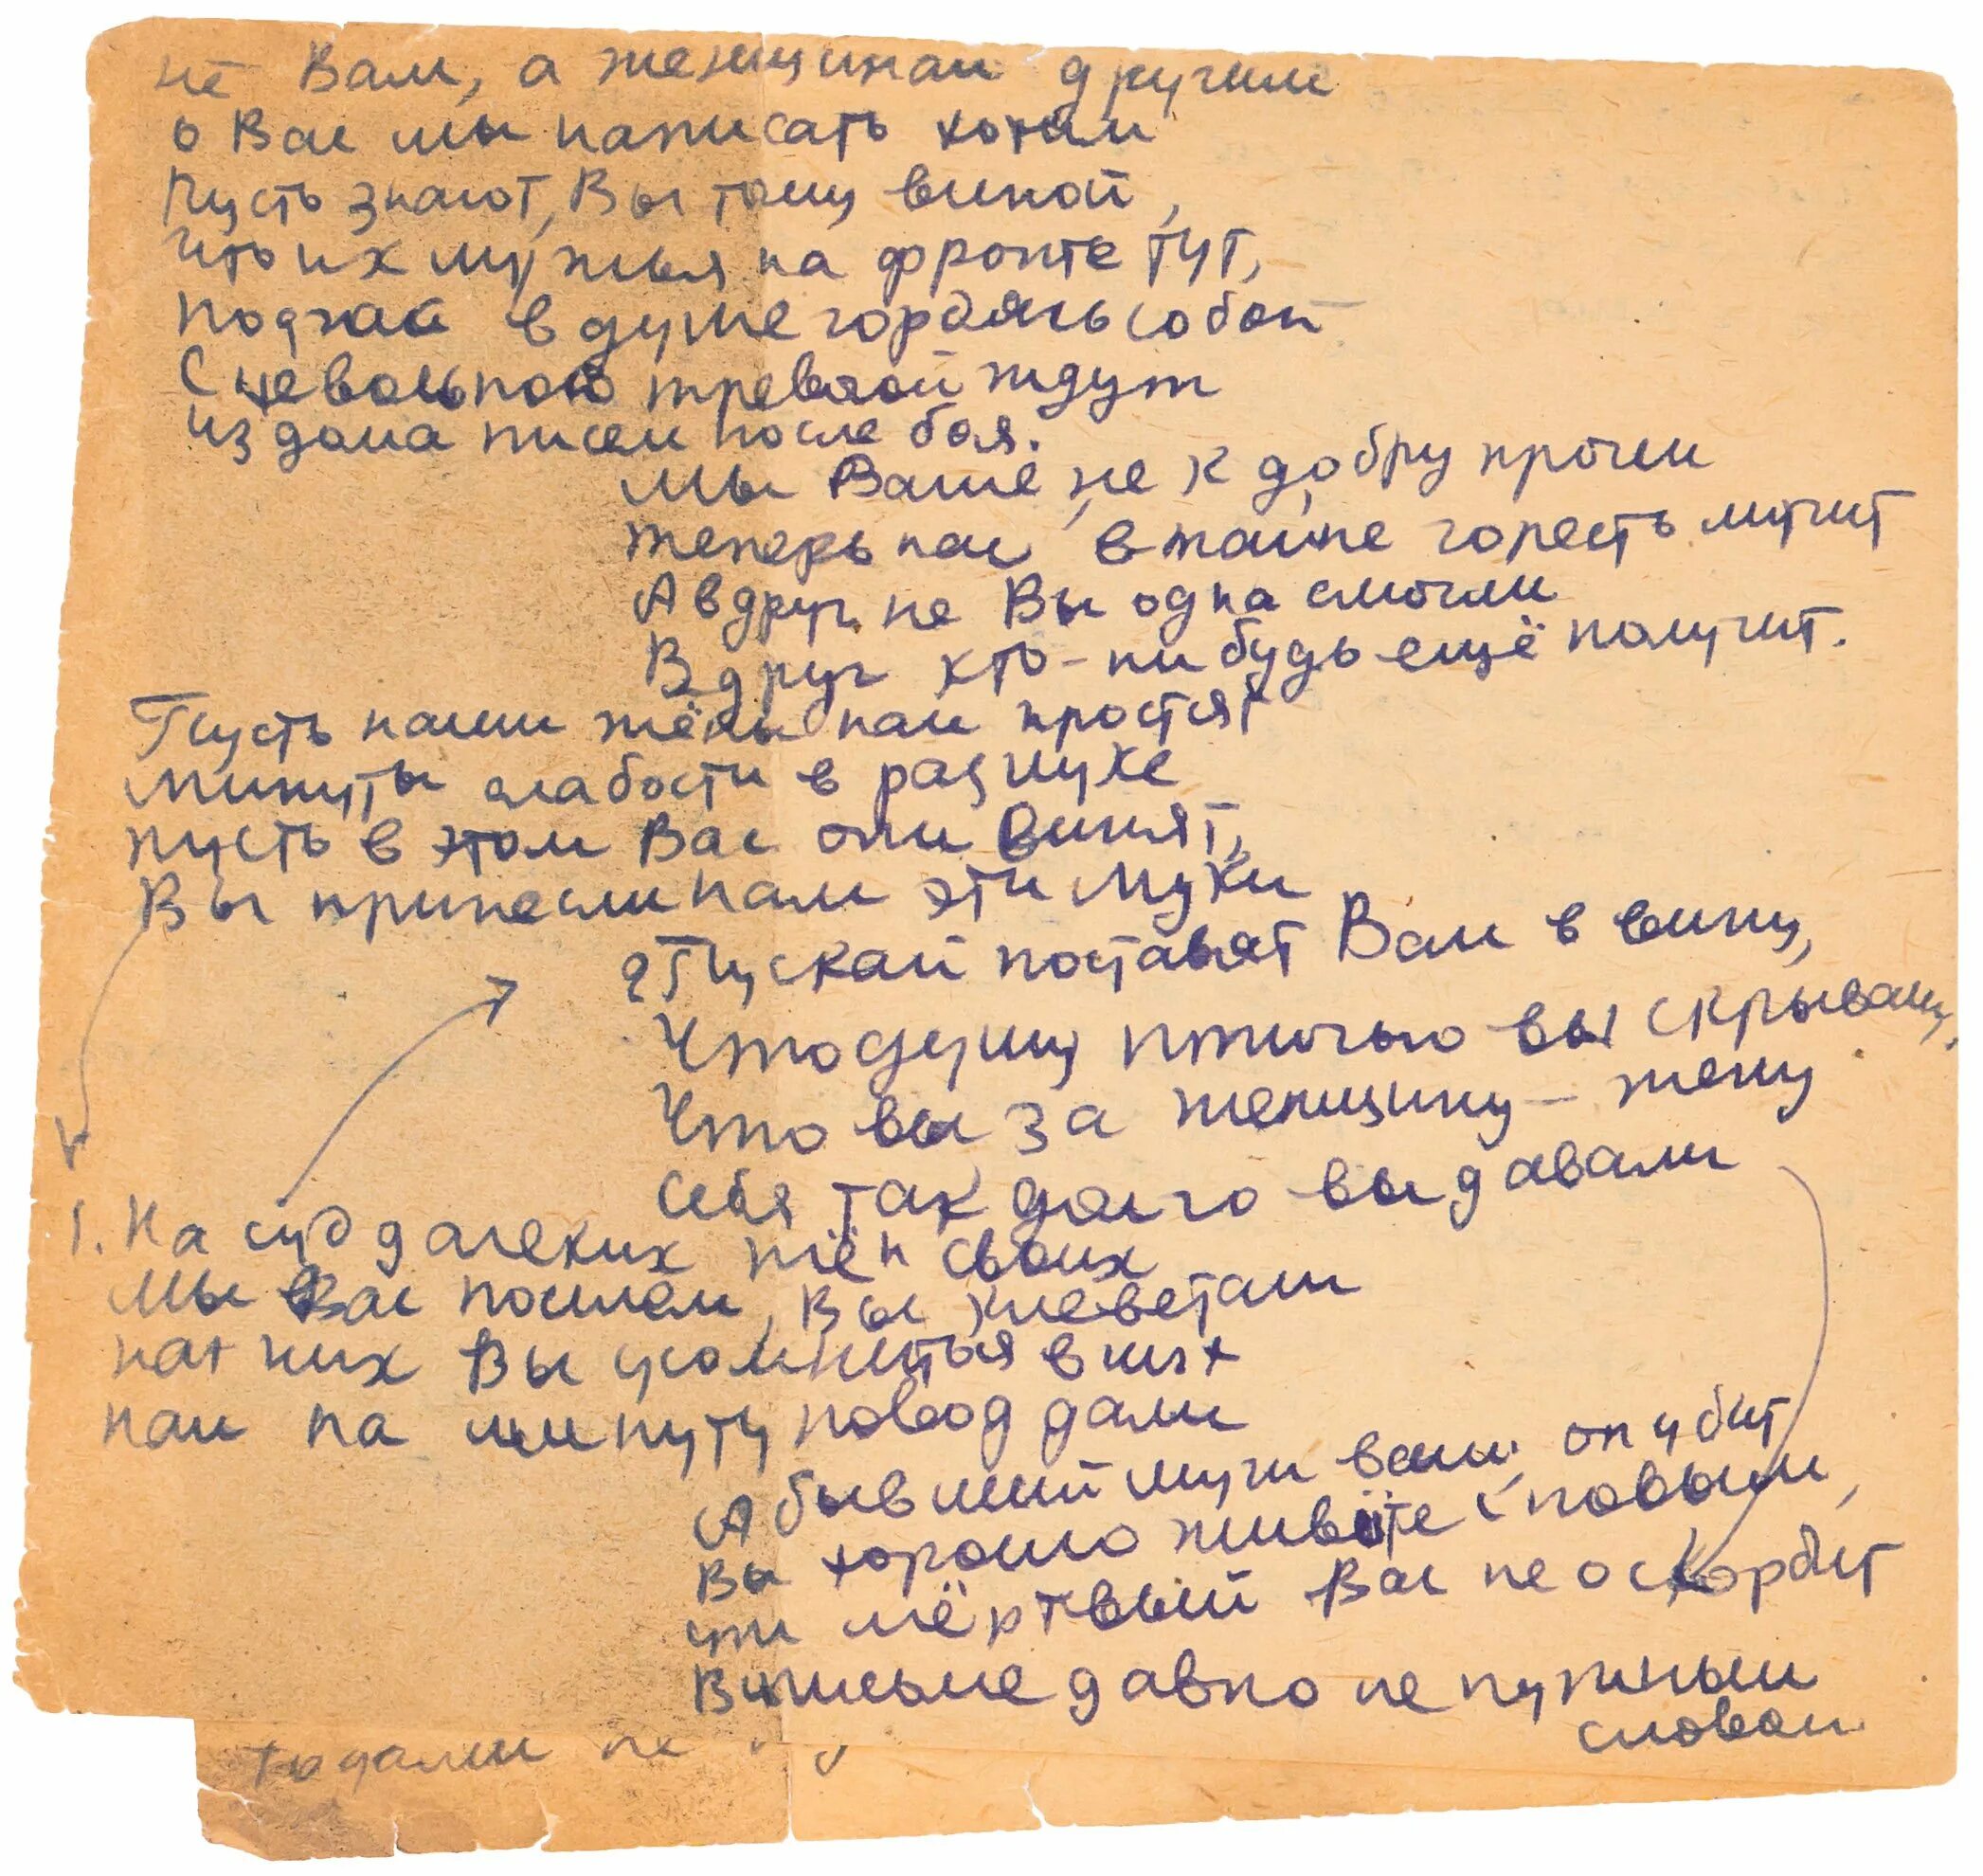 не Вам, а женщинам другим
о Вас мы написать хотели
Пусть знают, Вы тому виной,
что их мужья на фронте тут,
подчас в душе гордясь собой
С невольною тревогой ждут
из дома писем после боя.
Мы Ваше не к добру прочли
теперь нас втайне горесть мучит
А вдруг не Вы одна смогли
Вдруг кто-нибудь ещё получит.
Пусть наши жёны нам простят
минуты слабости в разлуке
пусть в этом Вас они винят,
Вы принесли нам эти муки
2 Пускай поставят Вам в вину,
Что душу птичью вы скрывали,
Что вы за женщину – жену
себя так долго выдавали
1. На суд далеких жён своих
Мы Вас пошлем, Вы клеветали
на них Вы усомниться в них
нам на минуту повод дали
А бывший муж ваш, он убит
Вы хорошо живёте с новым,
уж мёртвый Вас не оскорбит
В письме давно не нужным
словом